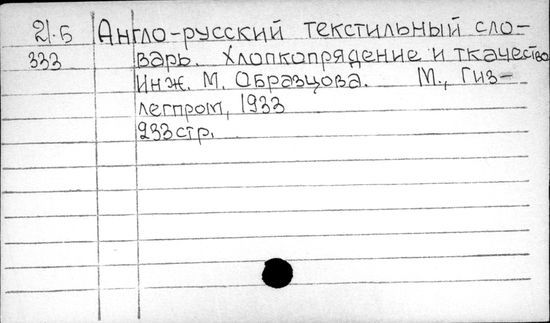 21.Б Англо-русский текстильный сло-
333 варь. Хлопкопрядение и ткачество
Инж. М. Образцова. М., Гиз-
легпром, 1933
233 стр.